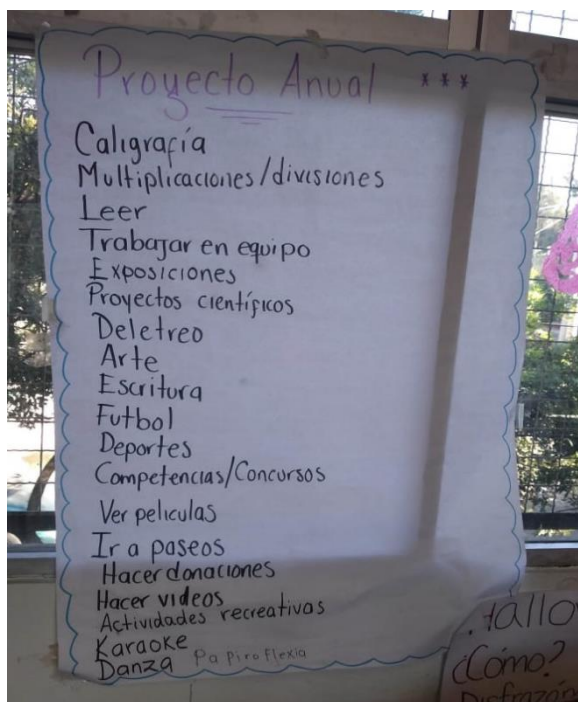 Proyecto Anual ***
Caligrafía
Multiplicaciones/divisiones
Leer
Trabajar en equipo
Exposiciones
Proyectos científicos
Deletreo
Arte
Escritura
Futbol
Deportes
Competencias/Concursos
Ver peliculas
Ir a paseos
Hacer donaciones
Hacer videos
Actividades recreativas
Karaoke
Danza Papiroflexia
¿Cómo?